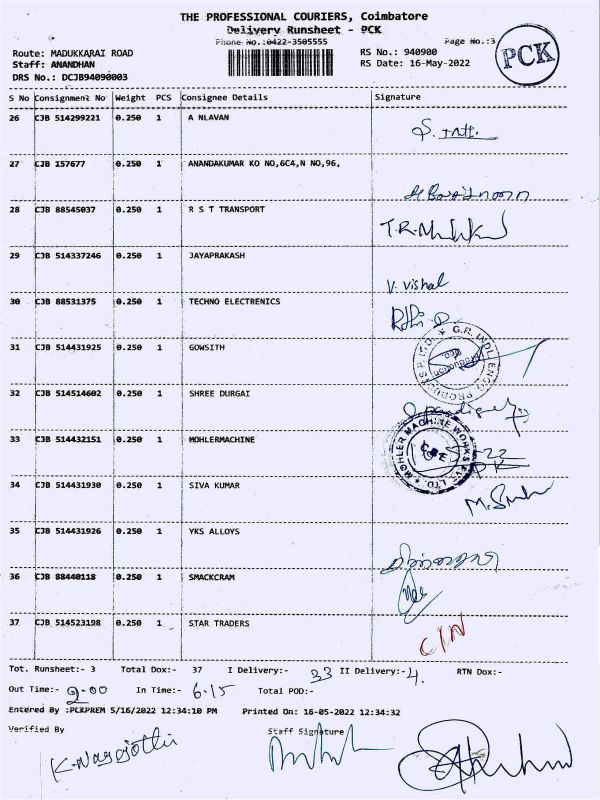 THE PROFESSIONAL COURIERS, Coimbatore
Delivery Runsheet - PCK
Phone No.:0422-3505555
Page No.:3
PCK
Route: MADUKKARAI ROAD
RS No.: 940900
Staff: ANANDHAN
RS Date: 16-May-2022
DRS No.: DCJB94090003
S No Consignment No Weight PCS Consignee Details Signature
26 CJB 514299221 0.250 1 A NLAVAN
27 CJB 157677 0.250 1 ANANDAKUMAR KO NO,6C4,N NO,96,
28 CJB 88545037 0.250 1 R S T TRANSPORT
29 CJB 514337246 0.250 1 JAYAPRAKASH
V. Vishal
30 CJB 88531375 0.250 1 TECHNO ELECTRENICS
31 CJB 514431925 0.250 1 GOWSITH
32 CJB 514514602 0.250 1 SHREE DURGAI
33 CJB 514432151 0.250 1 MOHLERMACHINE
MOHLER MACHINE WORKS PVT. LTD.
34 CJB 514431930 0.250 1 SIVA KUMAR
35 CJB 514431926 0.250 1 YKS ALLOYS
36 CJB 88440118 0.250 1 SMACKCRAM
37 CJB 514523198 0.250 1 STAR TRADERS
CIN
Tot. Runsheet:- 3 Total Dox:- 37 I Delivery:- 33 II Delivery:- 4. RTN Dox:-
Out Time:- 2.00 In Time:- 6.15 Total POD:-
Entered By :PCKPREM 5/16/2022 12:34:10 PM Printed On: 16-05-2022 12:34:32
Verified By
Staff Signature
K. Nagajothi